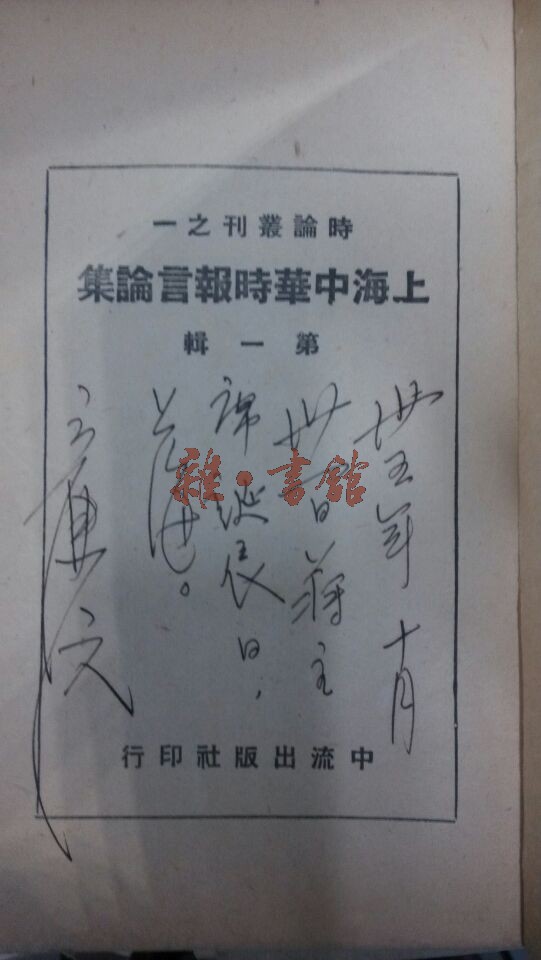 時論叢刊之一
上海中華時報言論集
第一輯
卅五年十月
卅一日蔣主
席誕辰日，
上海。
文
中流出版社印行
雜·書館